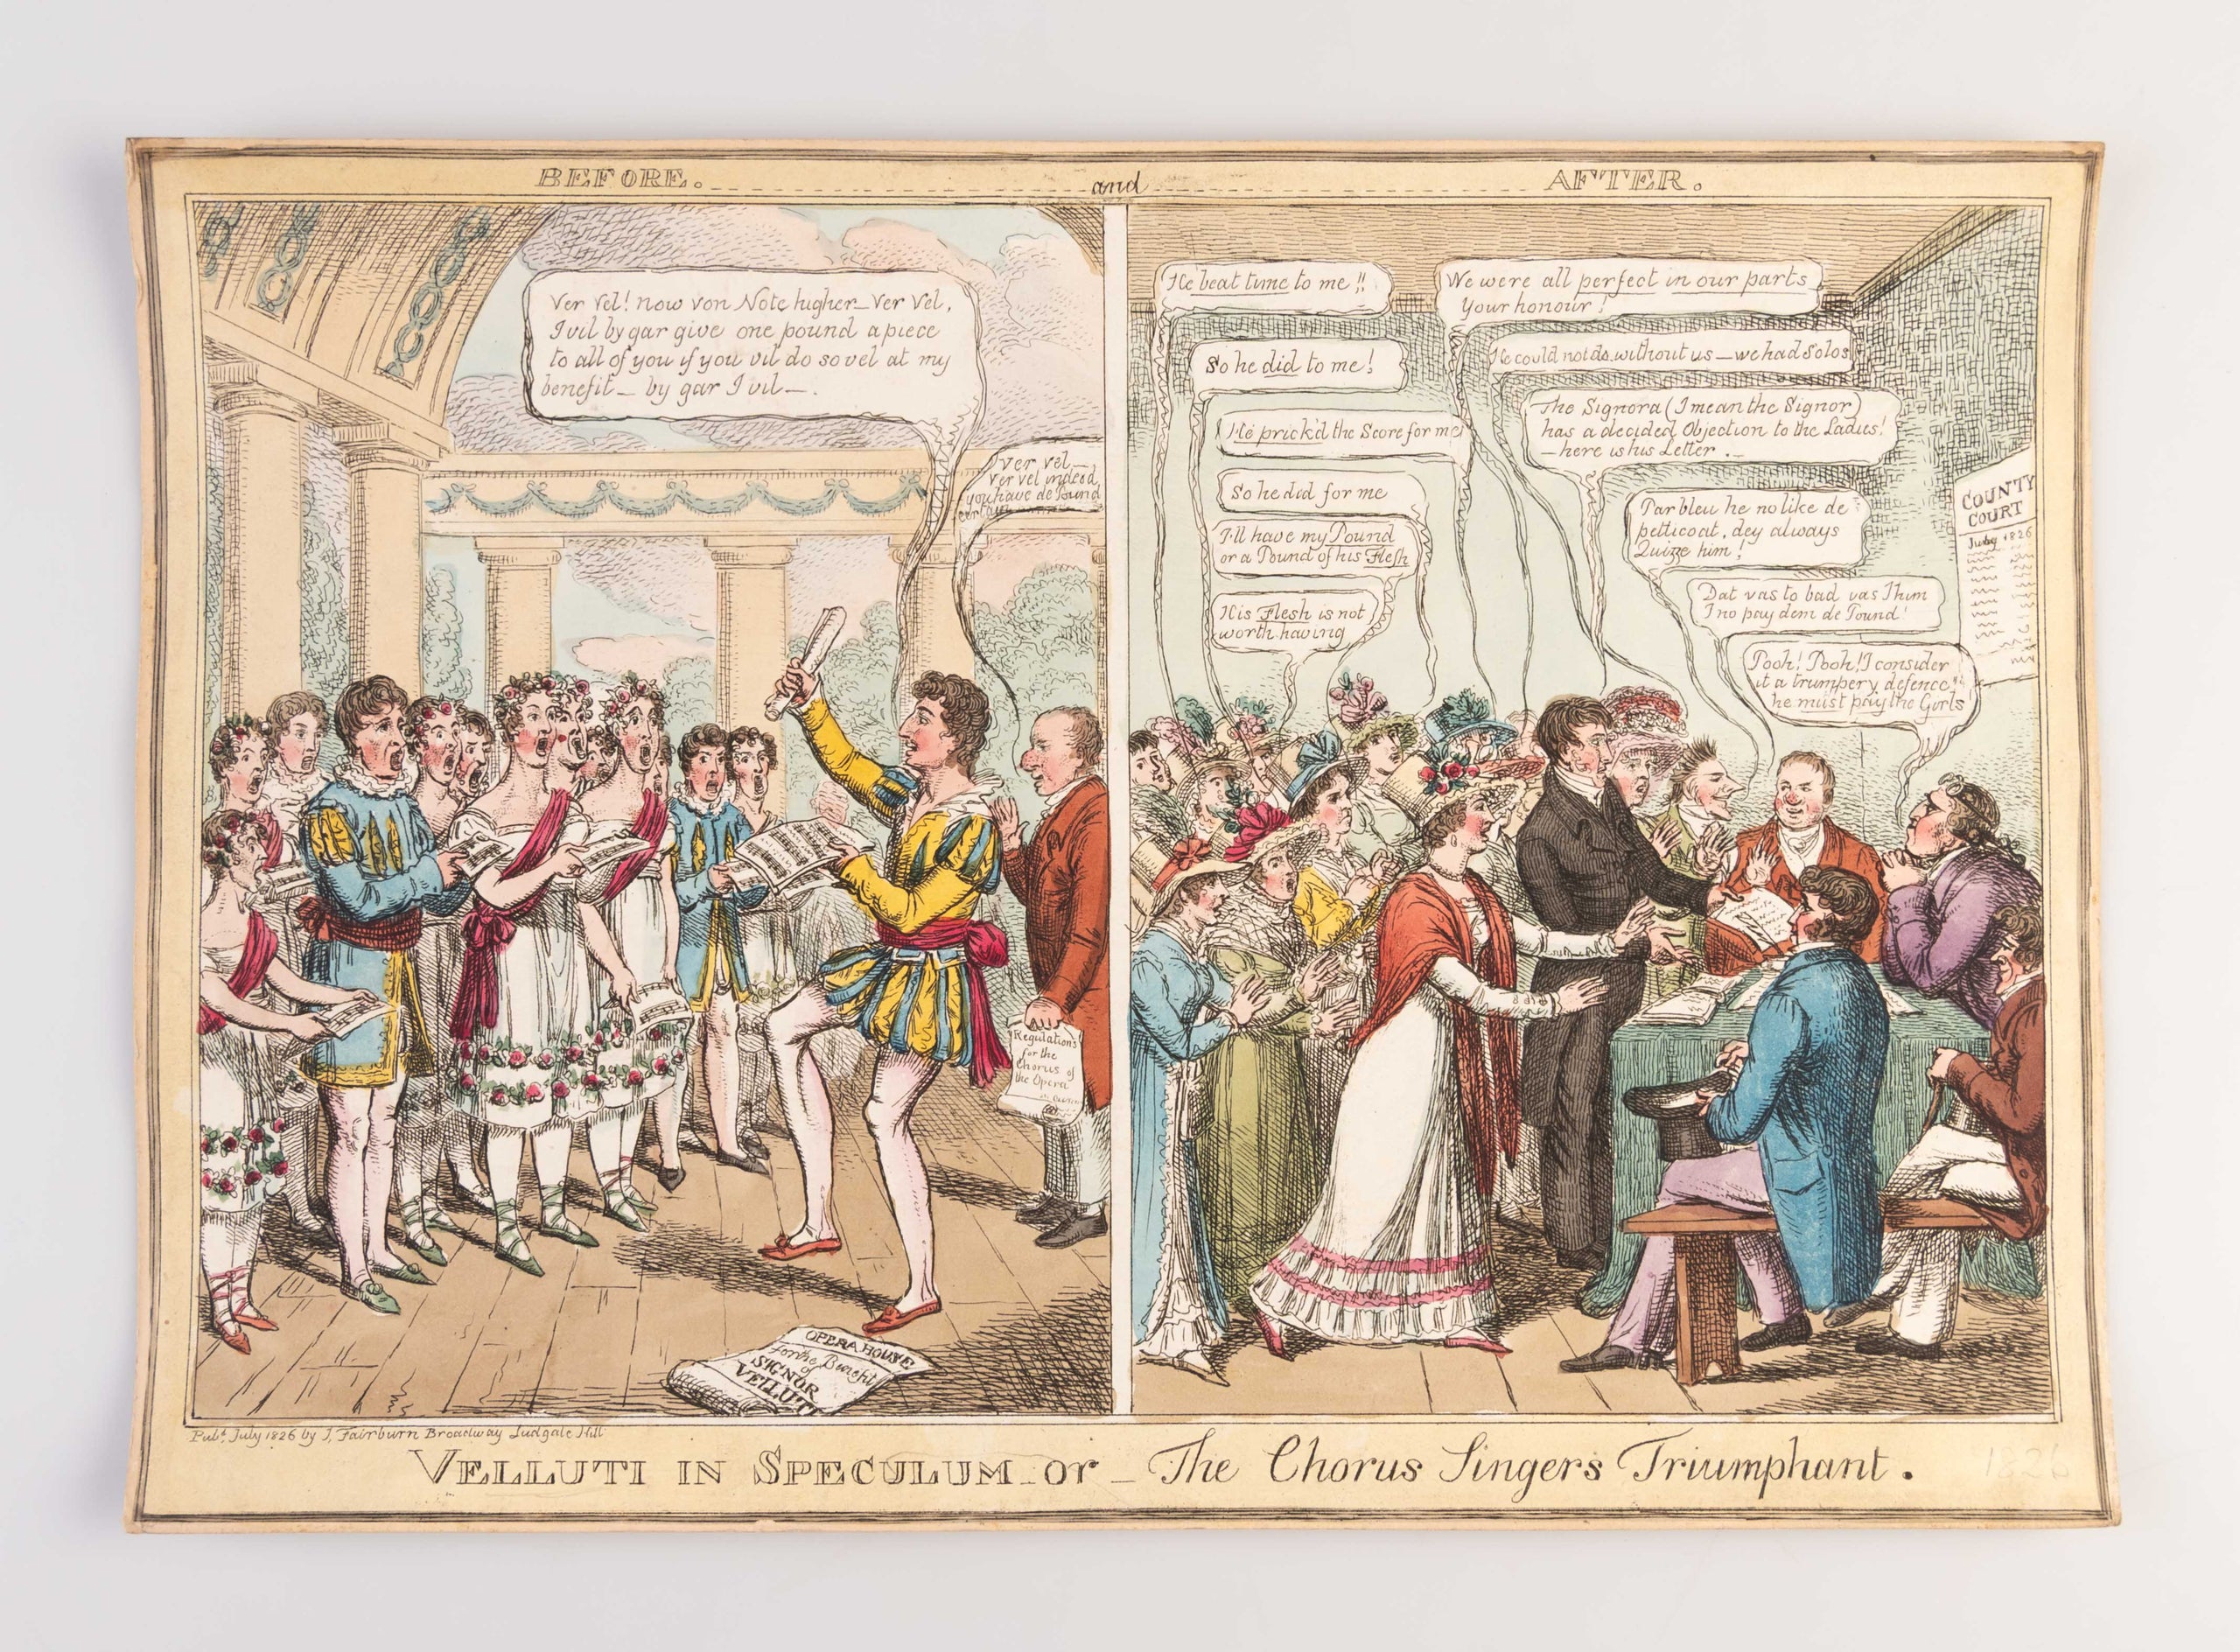 BEFORE. and AFTER.
Ver vel! now von Note higher_Ver vel,
I vil by gar give one pound a piece
to all of you if you vil do so vel at my
benefit_ by gar I vil_.
Ver vel_
Ver vel indeed,
you have de Pound
certain
Regulations
for the
Chorus of
the Opera
OPERA HOUSE
for the Benefit
of
SIGNOR
VELLUTI
He beat time to me!!
So he did to me!
He prick'd the Score for me
So he did for me
I'll have my Pound
or a Pound of his Flesh
His Flesh is not
worth having
We were all perfect in our parts
Your honour!
He could not do without us_we had Solos
The Signora (I mean the Signor)
has a decided Objection to the Ladies!
_here is his Letter._
Parbleu he no like de
petticoat, dey always
Quize him!
Dat vas to bad vas I him
I no pay dem de Pound!
Pooh! Pooh! I consider
it a trumpery defence!!
he must pay the Girls
COUNTY
COURT
July 1826
Pubd. July 1826 by J, Fairburn Broadway Ludgate Hill
VELLUTI IN SPECULUM_or_The Chorus Singers Triumphant.
1826